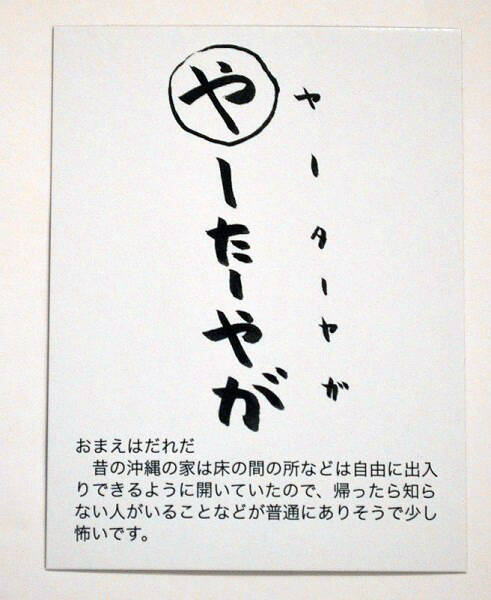 やーたーやが
ヤーターヤガ
おまえはだれだ
　昔の沖縄の家は床の間の所などは自由に出入
りできるように開いていたので、帰ったら知ら
ない人がいることなどが普通にありそうで少し
怖いです。